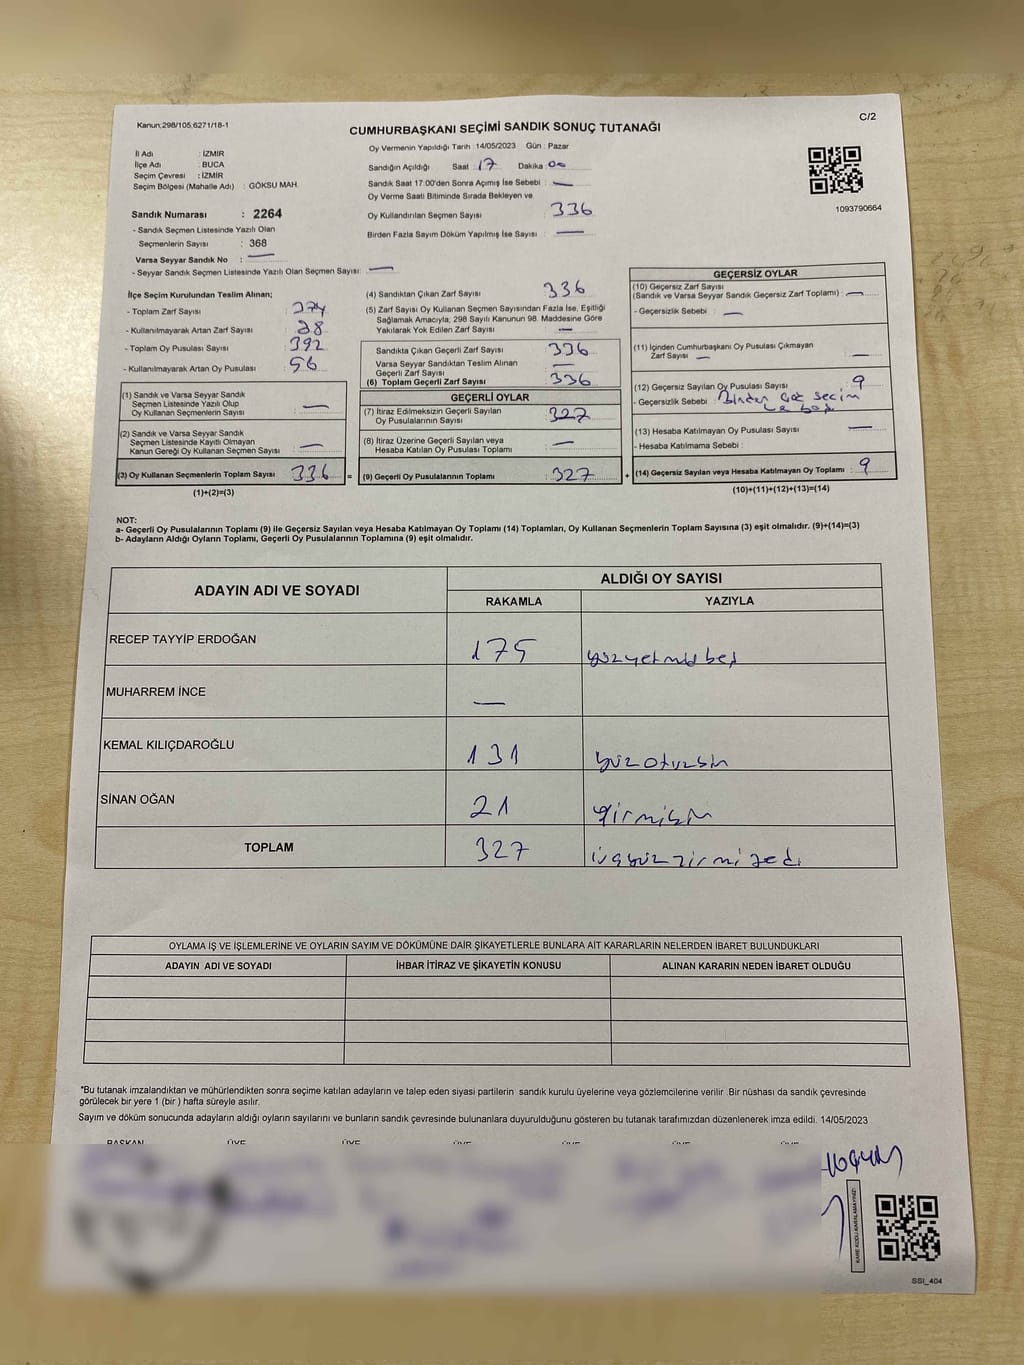 Kanun;298/105,6271/18-1
C/2
CUMHURBAŞKANI SEÇİMİ SANDIK SONUÇ TUTANAĞI
İl Adı : İZMİR
İlçe Adı : BUCA
Seçim Çevresi : İZMİR
Seçim Bölgesi (Mahalle Adı) : GÖKSU MAH.
Oy Vermenin Yapıldığı Tarih : 14/05/2023 Gün : Pazar
Sandığın Açıldığı Saat : 17 Dakika : 00
Sandık Saat 17:00'den Sonra Açımış İse Sebebi : —
Oy Verme Saati Bitiminde Sırada Bekleyen ve
Oy Kullandırılan Seçmen Sayısı 336
Birden Fazla Sayım Döküm Yapılmış İse Sayısı : —
1093790664
Sandık Numarası : 2264
- Sandık Seçmen Listesinde Yazılı Olan
Seçmenlerin Sayısı : 368
Varsa Seyyar Sandık No : —
- Seyyar Sandık Seçmen Listesinde Yazılı Olan Seçmen Sayısı: —
İlçe Seçim Kurulundan Teslim Alınan;
- Toplam Zarf Sayısı 374
- Kullanılmayarak Artan Zarf Sayısı 28
- Toplam Oy Pusulası Sayısı 392
- Kullanılmayarak Artan Oy Pusulası 56
(1) Sandık ve Varsa Seyyar Sandık
Seçmen Listesinde Yazılı Olup
Oy Kullanan Seçmenlerin Sayısı —
(2) Sandık ve Varsa Seyyar Sandık
Seçmen Listesinde Kayıtlı Olmayan
Kanun Gereği Oy Kullanan Seçmen Sayısı —
(3) Oy Kullanan Seçmenlerin Toplam Sayısı 336 =
(1)+(2)=(3)
(4) Sandıktan Çıkan Zarf Sayısı 336
(5) Zarf Sayısı Oy Kullanan Seçmen Sayısından Fazla İse, Eşitliği
Sağlamak Amacıyla, 298 Sayılı Kanunun 98. Maddesine Göre
Yakılarak Yok Edilen Zarf Sayısı —
Sandıkta Çıkan Geçerli Zarf Sayısı 336
Varsa Seyyar Sandıktan Teslim Alınan
Geçerli Zarf Sayısı —
(6) Toplam Geçerli Zarf Sayısı : 336
GEÇERLİ OYLAR
(7) İtiraz Edilmeksizin Geçerli Sayılan
Oy Pusulasının Sayısı 327
(8) İtiraz Üzerine Geçerli Sayılan veya
Hesaba Katılan Oy Pusulası Toplamı —
(9) Geçerli Oy Pusulalarının Toplamı : 327 +
GEÇERSİZ OYLAR
(10) Geçersiz Zarf Sayısı
(Sandık ve Varsa Seyyar Sandık Geçersiz Zarf Toplamı) : —
- Geçersizlik Sebebi : —
(11) İçinden Cumhurbaşkanı Oy Pusulası Çıkmayan
Zarf Sayısı — —
(12) Geçersiz Sayılan Oy Pusulası Sayısı 9
- Geçersizlik Sebebi : Birden çok seçim
(13) Hesaba Katılmayan Oy Pusulası Sayısı —
- Hesaba Katılmama Sebebi :
(14) Geçersiz Sayılan veya Hesaba Katılmayan Oy Toplamı : 9
(10)+(11)+(12)+(13)=(14)
NOT:
a- Geçerli Oy Pusulalarının Toplamı (9) ile Geçersiz Sayılan veya Hesaba Katılmayan Oy Toplamı (14) Toplamları, Oy Kullanan Seçmenlerin Toplam Sayısına (3) eşit olmalıdır. (9)+(14)=(3)
b- Adayların Aldığı Oyların Toplamı, Geçerli Oy Pusulalarının Toplamına (9) eşit olmalıdır.
ADAYIN ADI VE SOYADI ALDIĞI OY SAYISI
RAKAMLA YAZIYLA
RECEP TAYYİP ERDOĞAN 175 yüzyetmişbeş
MUHARREM İNCE —
KEMAL KILIÇDAROĞLU 131 yüzotuzbir
SİNAN OĞAN 21 yirmibir
TOPLAM 327 üçyüzyirmiyedi
OYLAMA İŞ VE İŞLEMLERİNE VE OYLARIN SAYIM VE DÖKÜMÜNE DAİR ŞİKAYETLERLE BUNLARA AİT KARARLARIN NELERDEN İBARET BULUNDUKLARI
ADAYIN ADI VE SOYADI İHBAR İTİRAZ VE ŞİKAYETİN KONUSU ALINAN KARARIN NEDEN İBARET OLDUĞU
*Bu tutanak imzalandıktan ve mühürlendikten sonra seçime katılan adayların ve talep eden siyasi partilerin sandık kurulu üyelerine veya gözlemcilerine verilir. Bir nüshası da sandık çevresinde
görülecek bir yere 1 (bir ) hafta süreyle asılır.
Sayım ve döküm sonucunda adayların aldığı oyların sayılarını ve bunların sandık çevresinde bulunanlara duyurulduğunu gösteren bu tutanak tarafımızdan düzenlenerek imza edildi. 14/05/2023
BAŞKAN ÜYE ÜYE ÜYE ÜYE ÜYE ÜYE
KARE KODU KARALAMAYINIZ!
SSI_404